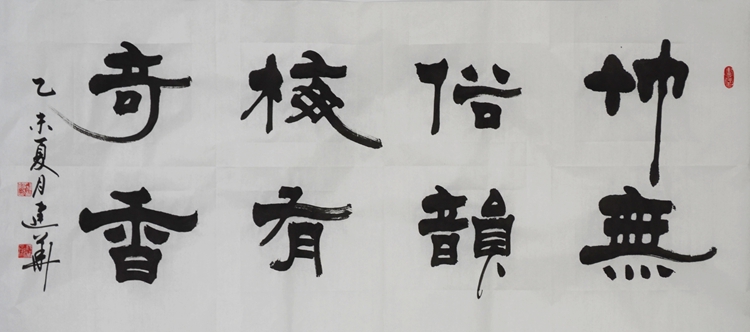 竹無
俗韻
梅有
奇香
乙未夏月建華